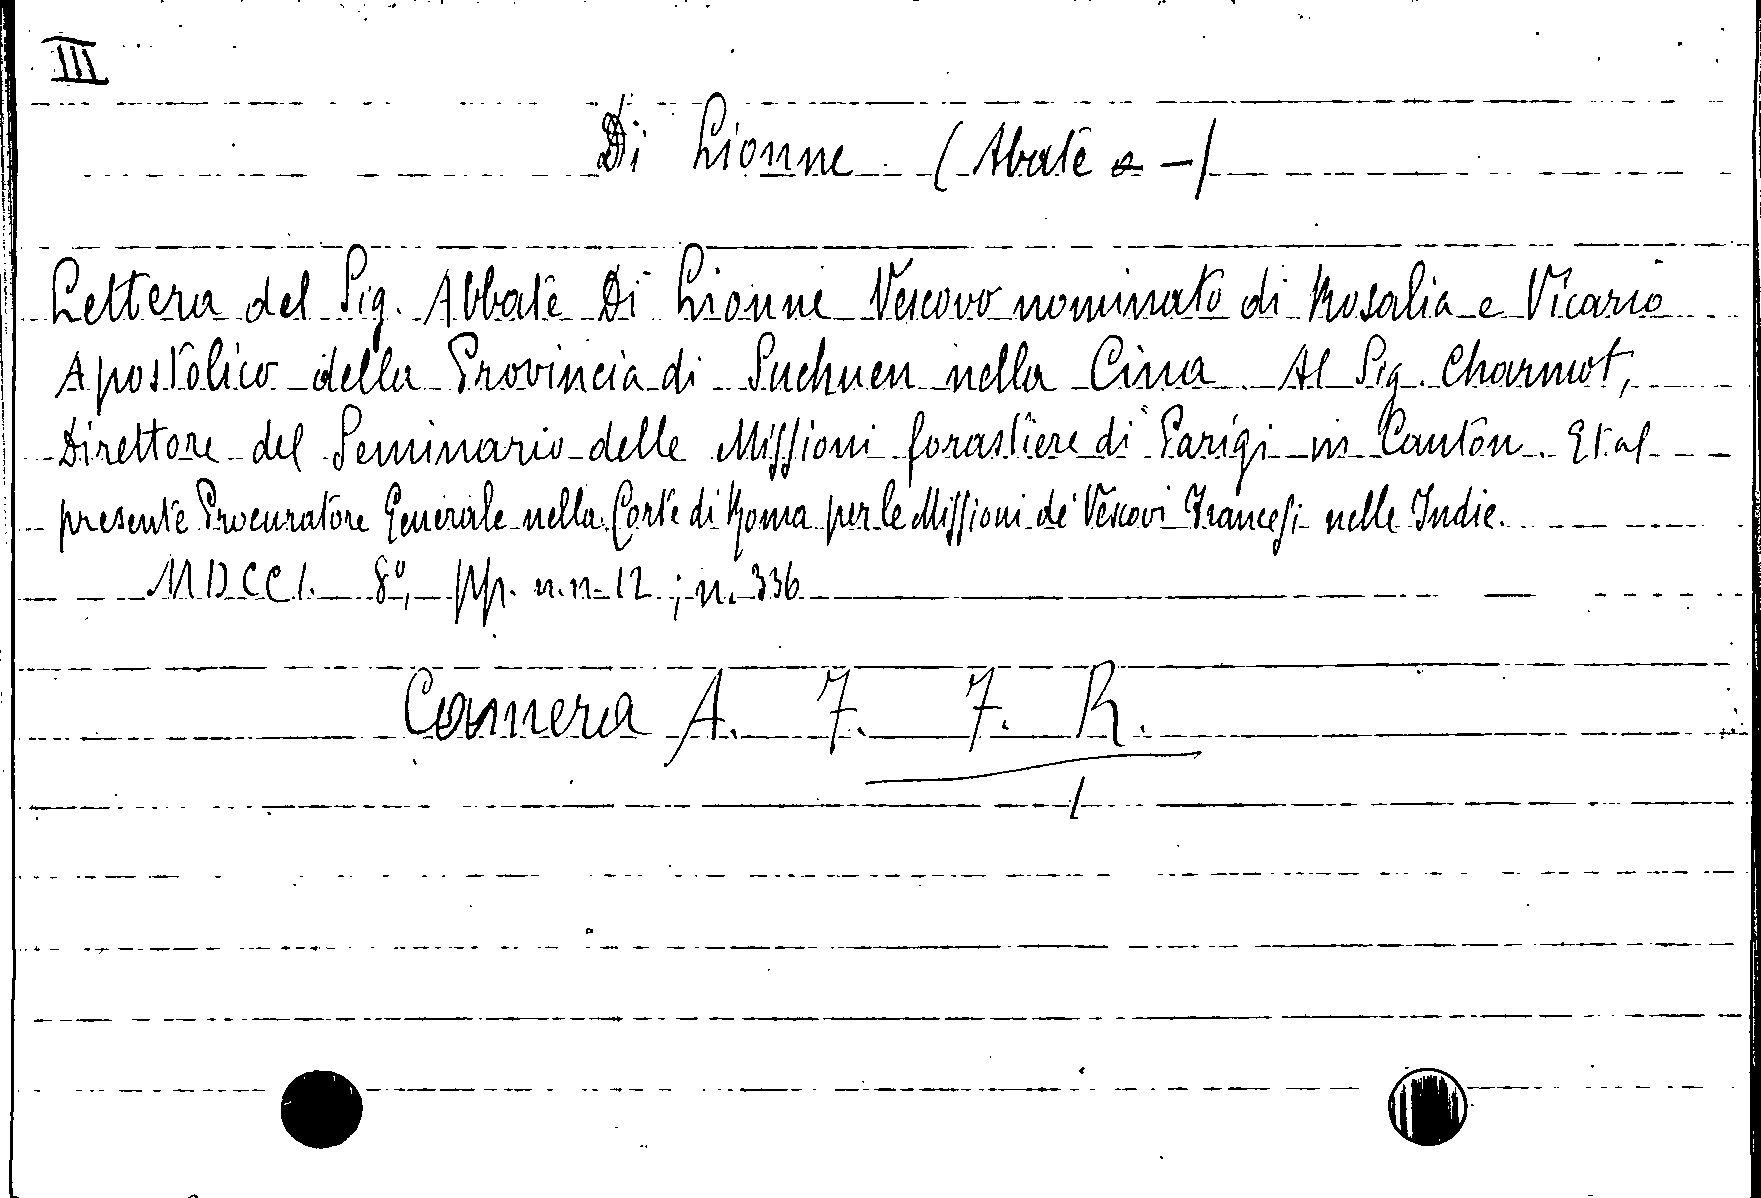 III
Di Lionne (Abate -)
Lettera del Sig. Abbate Di Lionne Vescovo nominato di Rosalia e Vicario
Apostolico della Provincia di Suchuen nella Cina Al Sig. Charmot,
Direttore del Seminario delle Missioni forastiere di Parigi in Canton. Et al
presente Procuratore Generale nella Corte di Roma per le Missioni de' Vescovi Francesi nelle Indie.
MDCCI. 8º, pp. n.n. 12 ; n. 336
Camera A. 7. 7. R.
1